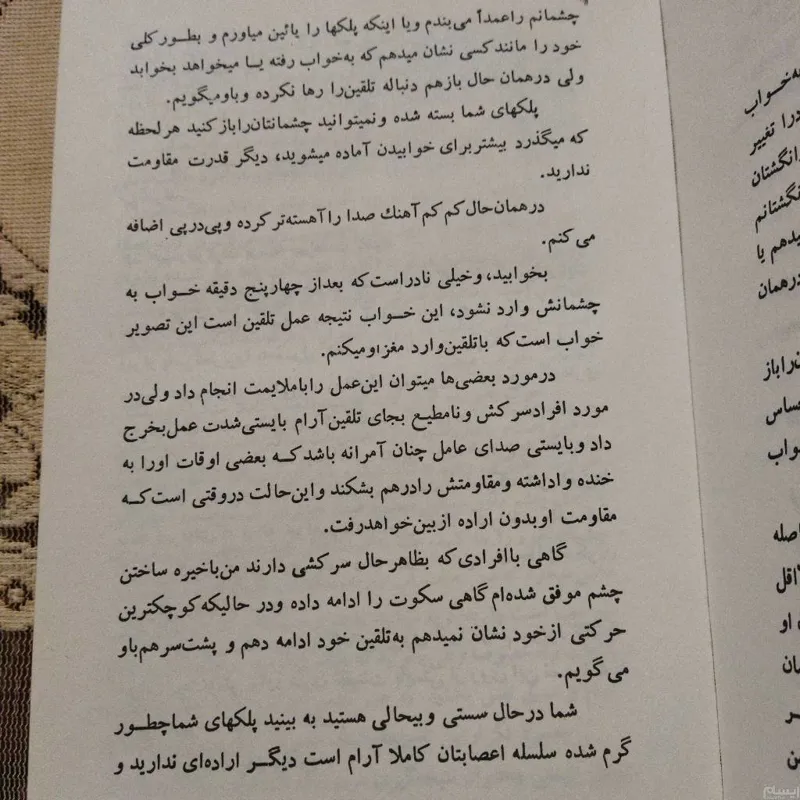 چشمانم راعمداً می‌بندم ویا اینکه پلکها را پائین میاورم و بطور کلی
خود را مانند کسی نشان میدهم که به‌خواب رفته یا میخواهد بخوابد
ولی درهمان حال بازهم دنباله تلقین‌را رها نکرده وباومیگویم.
پلکهای شما بسته شده ونمیتوانید چشمانتان‌راباز کنید هر لحظه
که میگذرد بیشتر برای خوابیدن آماده میشوید، دیگر قدرت مقاومت
ندارید.
درهمان‌حال کم کم آهنك صدا را آهسته‌تر کرده وپی‌درپی اضافه
می کنم.
بخوابید، وخیلی نادراست که بعداز چهارپنج دقیقه خواب به
چشمانش وارد نشود، این خواب نتیجه عمل تلقین است این تصویر
خواب است که باتلقین‌وارد مغزاومیکنم.
درمورد بعضی‌ها میتوان این‌عمل راباملایمت انجام داد ولی‌در
مورد افرادسرکش ونامطیع بجای تلقین‌آرام بایستی‌شدت عمل‌بخرج
داد وبایستی صدای عامل چنان آمرانه باشد که بعضی اوقات اورا به
خنده واداشته ومقاومتش رادرهم بشکند واین‌حالت دروقتی است که
مقاومت اوبدون اراده ازبین‌خواهدرفت.
گاهی باافرادی که بظاهرحال سرکشی دارند من‌باخیره ساختن
چشم موفق شده‌ام گاهی سکوت را ادامه داده ودر حالیکه کوچکترین
حرکتی ازخود نشان نمیدهم به‌تلقین خود ادامه دهم و پشت‌سرهم‌باو
می گویم.
شما درحال سستی وبیحالی هستید به بینید پلکهای شماچطور
گرم شده سلسله اعصابتان کاملا آرام است دیگر اراده‌ای ندارید و
به‌خواب
درا تغییر
انگشتان
نگشتانم
یدهم یا
درهمان
ن‌راباز
حساس
واب
اصله
اقل
ن او
مان
ر
ن